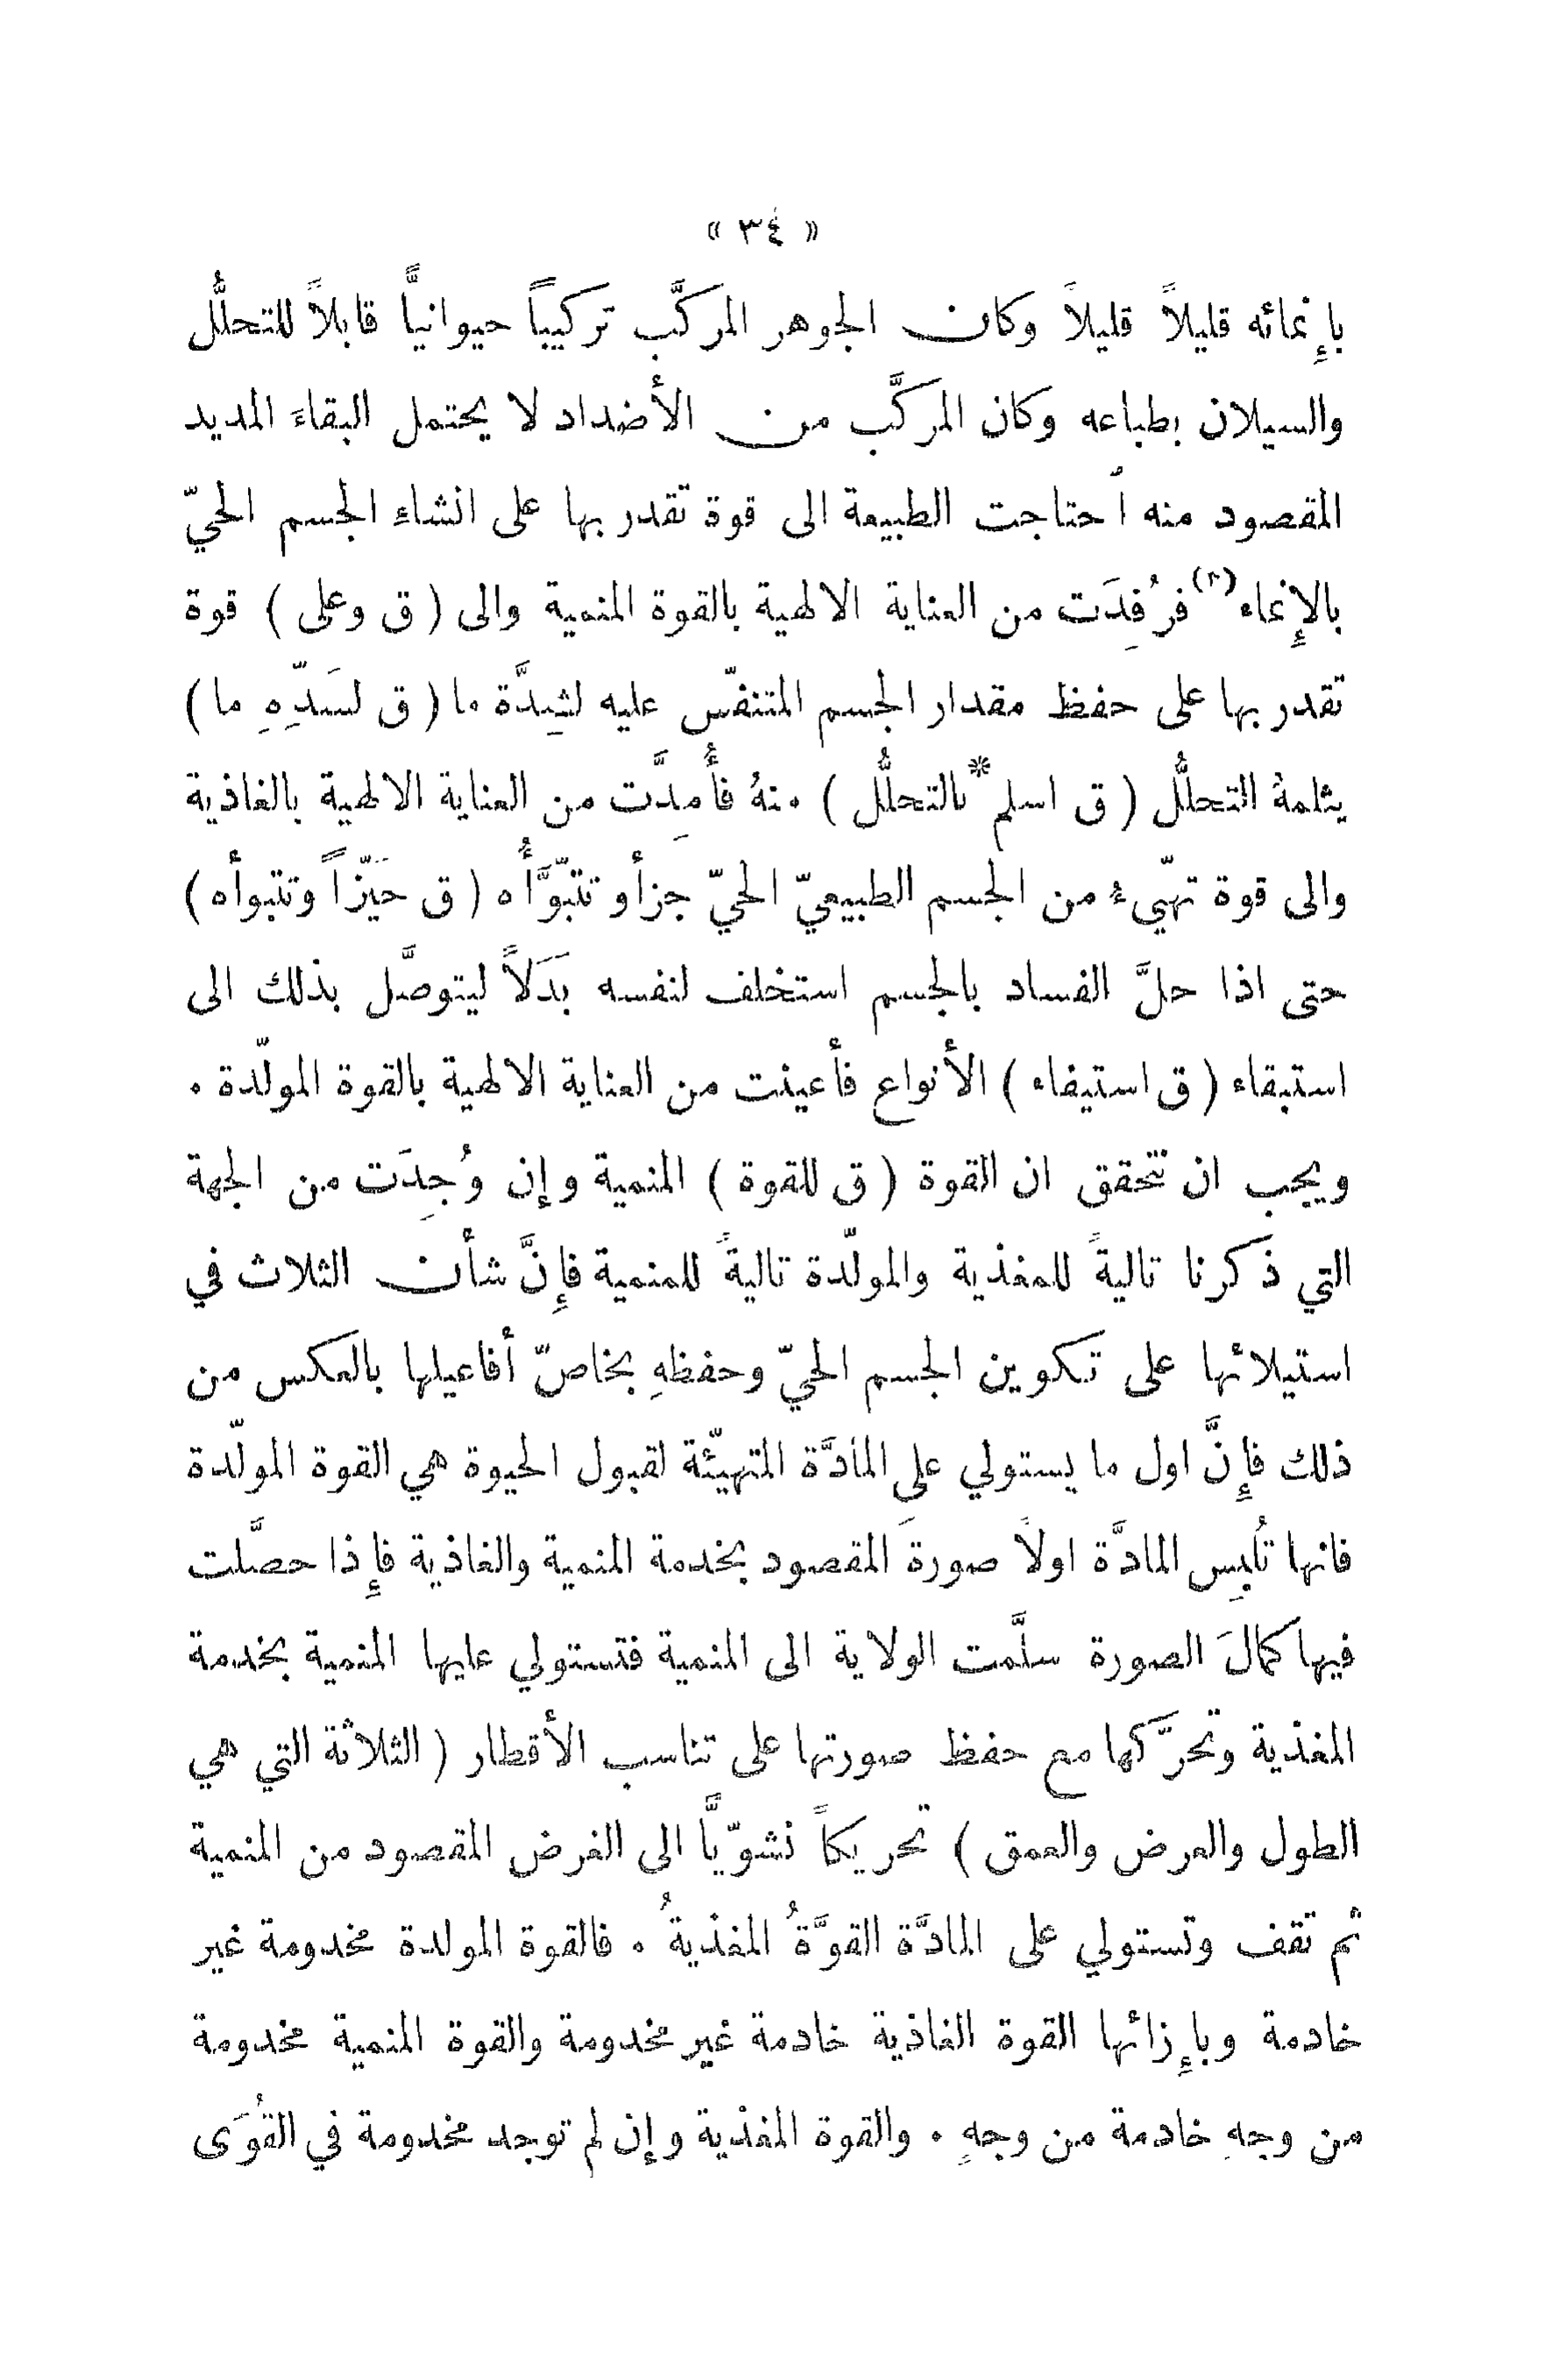 « ٣٤ »
بإِنمائه قليلاً قليلاً وكان الجوهر المركَّب تركيباً حيوانيًّا قابلاً للتحلُّل
والسيلان بطباعه وكان المركَّب من الأضداد لا يحتمل البقاءَ المديد
المقصود منه ٱحتاجت الطبيعة الى قوة تقدر بها على انشاءِ الجسم الحيّ
بالإِنماء(٢) فرُفِدَت من العناية الالهية بالقوة المنمية والى ( ق وعلى ) قوة
تقدر بها على حفظ مقدار الجسم المتنفّس عليه لشِدَّة ما ( ق لسَدّهِ ما )
يثلمهُ التحلُّل ( ق اسلم * بالتحلُّل ) منهُ فأُمِدَّت من العناية الالهية بالغاذية
والى قوة تهّيءُ من الجسم الطبيعيّ الحيّ جزأ وتتبّوَّأُه ( ق حَيّزاً وتتبوأه )
حتى اذا حلَّ الفساد بالجسم استخلف لنفسه بَدَلاً ليتوصَّل بذلك الى
استبقاء ( ق استيفاء ) الأنواع فأعينت من العناية الالهية بالقوة المولّدة .
ويجب ان تتحقق ان القوة ( ق للقوة ) المنمية وإن وُجِدَت من الجهة
التي ذكرنا تاليةً للمغذية والمولّدة تاليةً للمنمية فإِنَّ شأن الثلاث في
استيلائها على تكوين الجسم الحيّ وحفظهِ بخاصّ أفاعيلها بالعكس من
ذلك فإِنَّ اول ما يستولي على المادَّة المتهيّئة لقبول الحيوة هي القوة المولّدة
فانها تُلبِس المادَّة اولاً صورةَ المقصود بخدمة المنمية والغاذية فإِذا حصَّلت
فيها كمالَ الصورة سلَّمت الولاية الى المنمية فتستولي عليها المنمية بخدمة
المغذية وتحرّكها مع حفظ صورتها على تناسب الأقطار ( الثلاثة التي هي
الطول والعرض والعمق ) تحريكاً نشوّيًّا الى الغرض المقصود من المنمية
ثم تقف وتستولي على المادَّة القوَّةُ المغذيةُ . فالقوة المولدة مخدومة غير
خادمة وبإِزائها القوة الغاذية خادمة غير مخدومة والقوة المنمية مخدومة
من وجهِ خادمة من وجهٍ . والقوة المغذية وإن لم توجد مخدومة في القُوَى